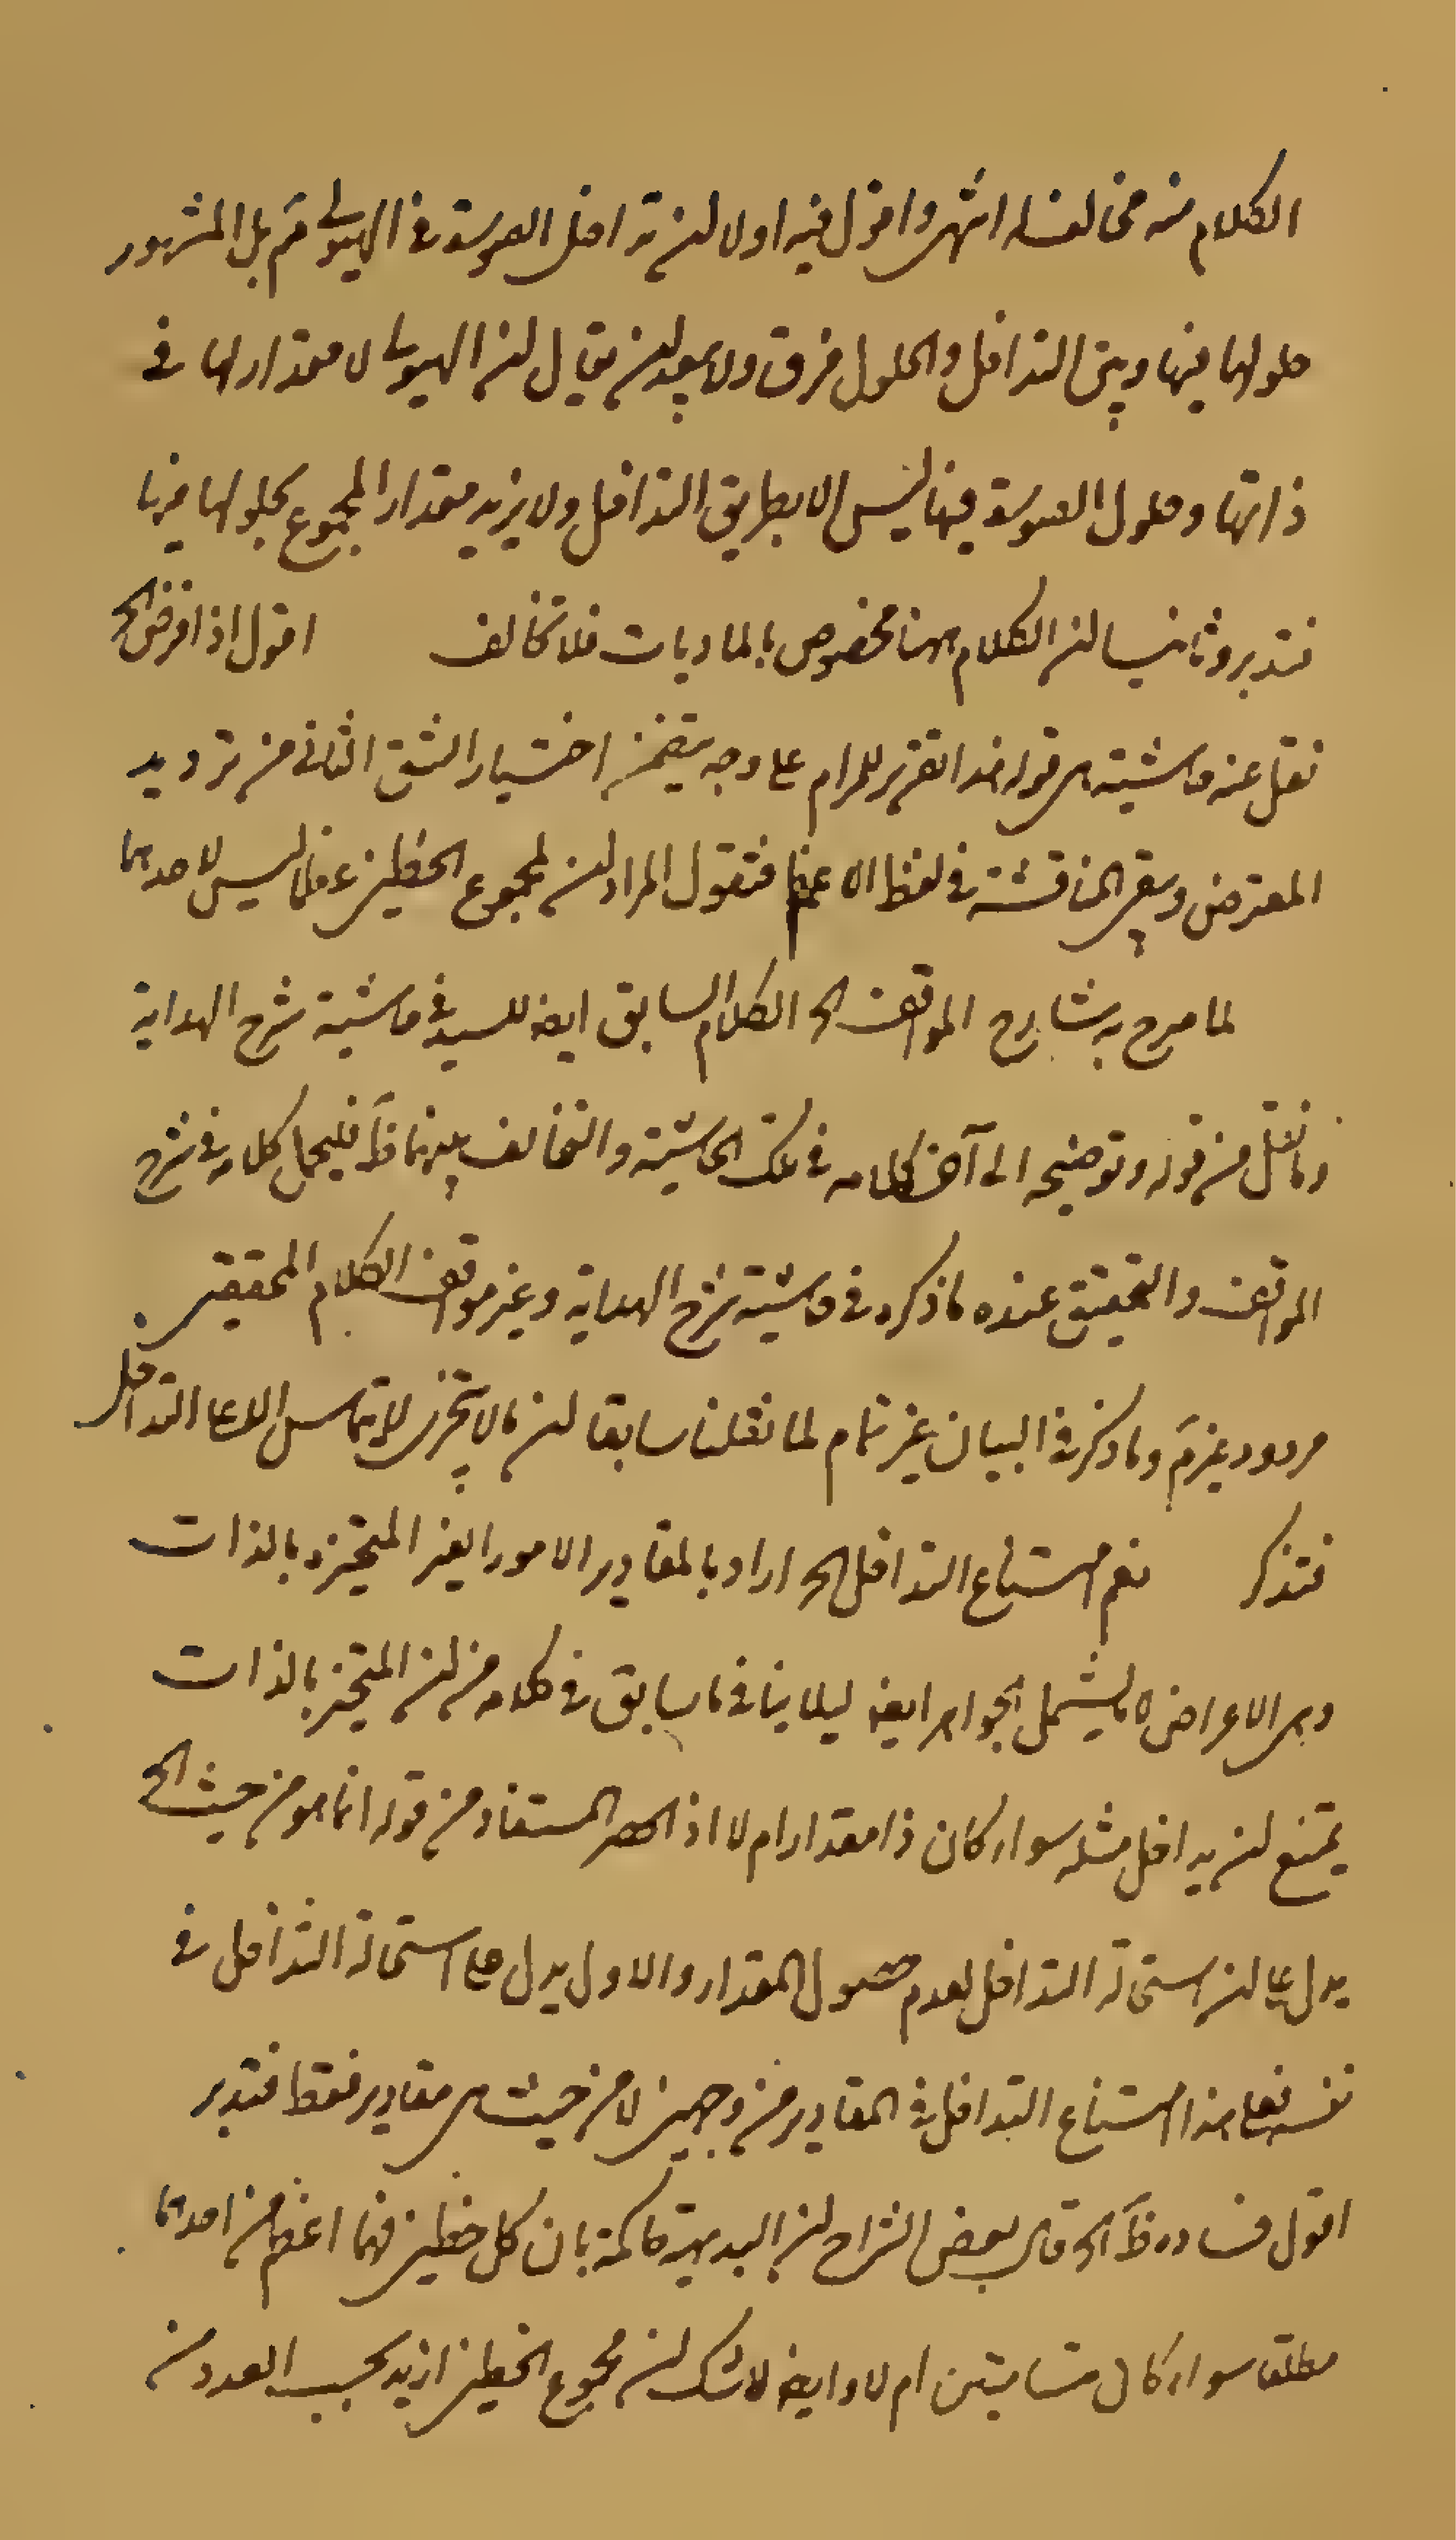 الكلام منه مخالف له انتهى واقول فيه اولا ان تداخل الصورة في الهيولى مم بل المشهور
حلولها فيها وبين التداخل والحلول فرق ولا يبعد ان يقال ان الهيولى لا مقدار لها في
ذاتها وحلول الصورة فيها ليس الا بطريق التداخل ولا يزيد مقدار المجموع بحلولها فيها
فتدبر وثانيا ان الكلام ههنا مخصوص بالماديات فلا تخالف اقول اذا فرض الخ
نقل عنه حاشية هي قوله هذا تقرير للمرام على وجه يتضمن اختيار الشق الثاني من ترديد
المعترض وبقي المناقشة في لفظ الاعظم فنقول المراد ان لمجموع الخطين عظما ليس لاحدهما
لما صرح به شارح المواقف الخ الكلام السابق ايضا للسيد في حاشية شرح الهداية
وما نقل من قوله وتوضيحه الى آخر كلامه في تلك الحاشية والتخالف بينهما ظ فليحمل كلامه في شرح
المواقف والتحقيق عنده ما ذكره في حاشية شرح الهداية وغير موافق الكلام المحققين
مردود غير مم وما ذكر في البيان غير تمام لما نقلنا سابقا ان ما لا يتجزى لا يتماس الا على التداخل
فتذكر نعم امتناع التداخل الخ اراد بالمقادير الامور الغير المتحيزة بالذات
وهي الاعراض ما يشمل الجواهر ايضا ليلا ينافي ما سابق في كلامه من ان المتحيز بالذات
يمتنع ان يداخل مثله سواء كان ذا مقدار ام لا اذ الحصر المستفاد من قوله انما هو من حيث الخ
يدل على ان استحالة التداخل لعدم حصول المقدار والاول يدل على استحالة التداخل في
نفسه فعلى هذا امتناع التداخل في المقادير من وجهين لا من حيث هي مقادير فقط فتدبر
اقول فساده ظ الخ قال بعض الشراح ان البديهة حاكمة بان كل خطين فهما اعظم من احدهما
مطلقا سواء كان متساويين ام لا وايضا لا شك ان مجموع الخطين ازيد بحسب العدد من